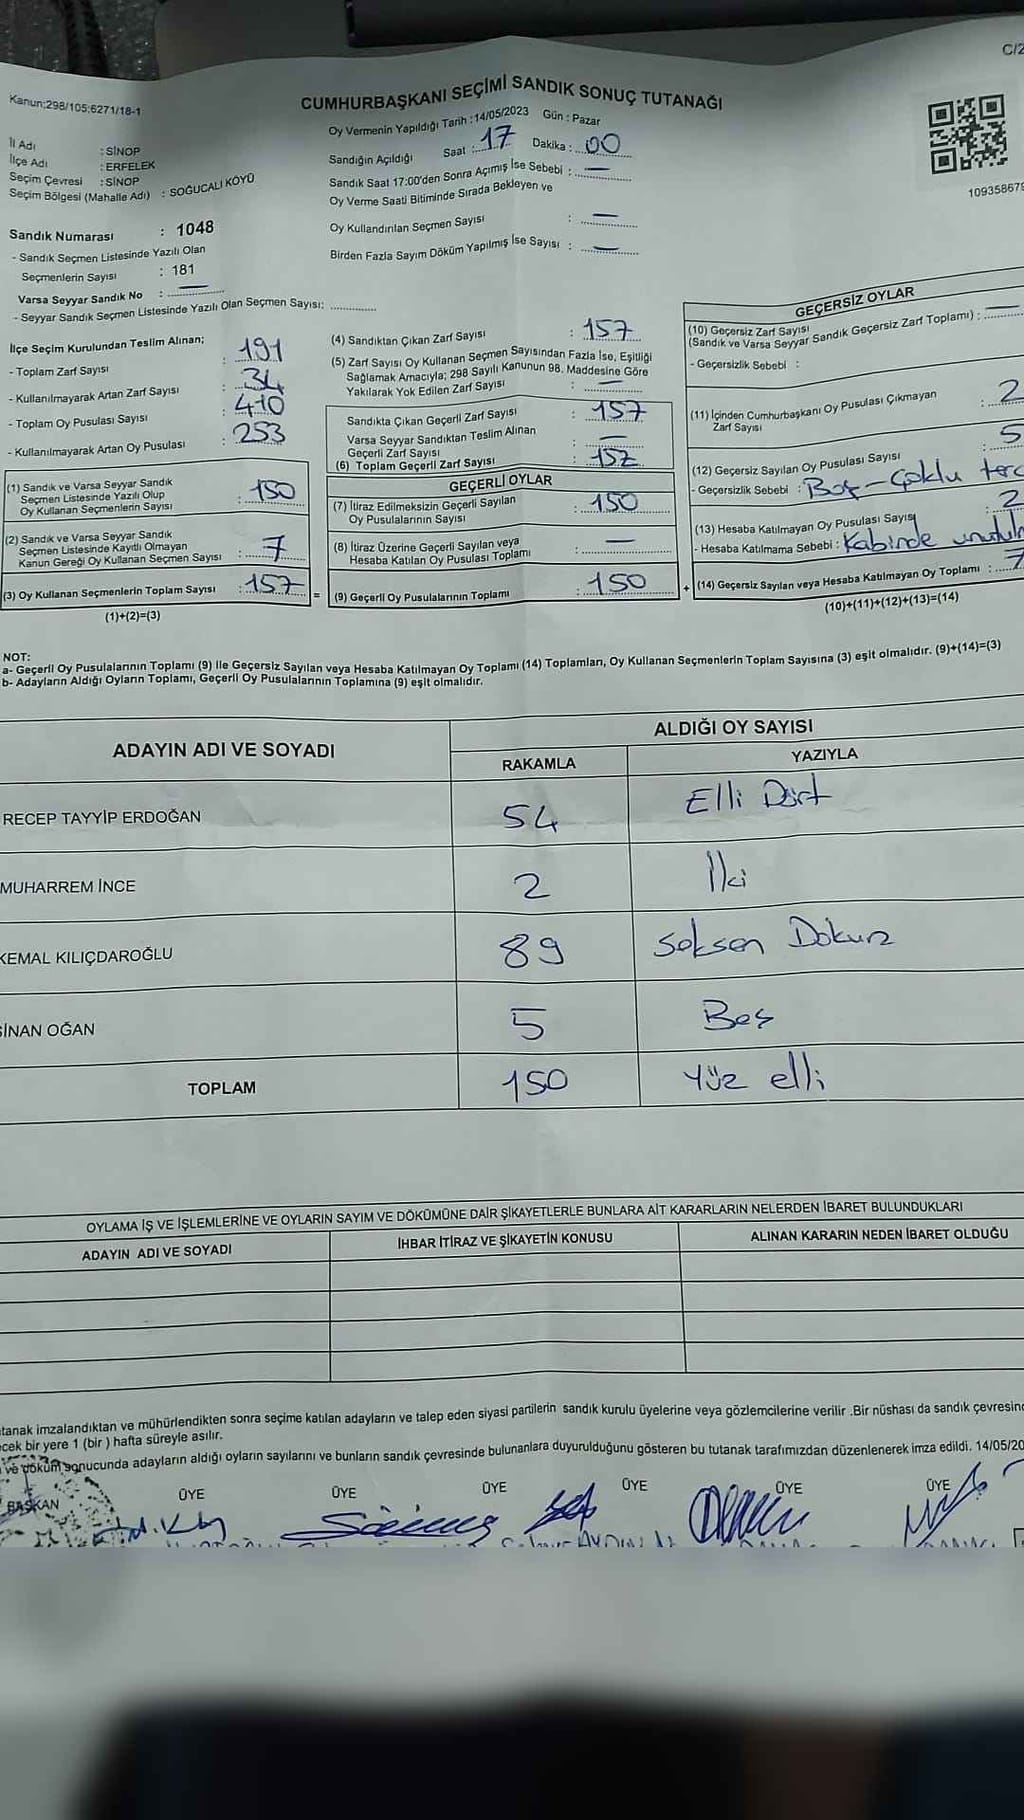 C/2
Kanun;298/105;6271/18-1
CUMHURBAŞKANI SEÇİMİ SANDIK SONUÇ TUTANAĞI
Oy Vermenin Yapıldığı Tarih : 14/05/2023 Gün : Pazar
İl Adı : SİNOP
İlçe Adı : ERFELEK
Seçim Çevresi : SİNOP
Seçim Bölgesi (Mahalle Adı) : SOĞUCALI KÖYÜ
Sandık Numarası : 1048
- Sandık Seçmen Listesinde Yazılı Olan
Seçmenlerin Sayısı : 181
Varsa Seyyar Sandık No : —
- Seyyar Sandık Seçmen Listesinde Yazılı Olan Seçmen Sayısı: ............
Sandığın Açıldığı Saat : 17 Dakika : 00
Sandık Saat 17:00'den Sonra Açımış İse Sebebi : —
Oy Verme Saati Bitiminde Sırada Bekleyen ve
Oy Kullandırılan Seçmen Sayısı : —
Birden Fazla Sayım Döküm Yapılmış İse Sayısı : —
109358679
İlçe Seçim Kurulundan Teslim Alınan;
- Toplam Zarf Sayısı : 191
- Kullanılmayarak Artan Zarf Sayısı : 34
- Toplam Oy Pusulası Sayısı : 410
- Kullanılmayarak Artan Oy Pusulası : 253
(1) Sandık ve Varsa Seyyar Sandık
Seçmen Listesinde Yazılı Olup
Oy Kullanan Seçmenlerin Sayısı : 150
(2) Sandık ve Varsa Seyyar Sandık
Seçmen Listesinde Kayıtlı Olmayan
Kanun Gereği Oy Kullanan Seçmen Sayısı : 7
(3) Oy Kullanan Seçmenlerin Toplam Sayısı : 157 =
(1)+(2)=(3)
(4) Sandıktan Çıkan Zarf Sayısı : 157
(5) Zarf Sayısı Oy Kullanan Seçmen Sayısından Fazla İse, Eşitliği
Sağlamak Amacıyla; 298 Sayılı Kanunun 98. Maddesine Göre
Yakılarak Yok Edilen Zarf Sayısı : —
Sandıkta Çıkan Geçerli Zarf Sayısı : 157
Varsa Seyyar Sandıktan Teslim Alınan
Geçerli Zarf Sayısı : —
(6) Toplam Geçerli Zarf Sayısı : 157
GEÇERLİ OYLAR
(7) İtiraz Edilmeksizin Geçerli Sayılan
Oy Pusulalarının Sayısı : 150
(8) İtiraz Üzerine Geçerli Sayılan veya
Hesaba Katılan Oy Pusulası Toplamı : —
(9) Geçerli Oy Pusulalarının Toplamı : 150 +
GEÇERSİZ OYLAR
(10) Geçersiz Zarf Sayısı
(Sandık ve Varsa Seyyar Sandık Geçersiz Zarf Toplamı) : —
- Geçersizlik Sebebi :
(11) İçinden Cumhurbaşkanı Oy Pusulası Çıkmayan
Zarf Sayısı : 2
(12) Geçersiz Sayılan Oy Pusulası Sayısı : 5
- Geçersizlik Sebebi : Boş - Çoklu terc
(13) Hesaba Katılmayan Oy Pusulası Sayısı : 2
- Hesaba Katılmama Sebebi : Kabinde unutulm
(14) Geçersiz Sayılan veya Hesaba Katılmayan Oy Toplamı : 7
(10)+(11)+(12)+(13)=(14)
NOT:
a- Geçerli Oy Pusulalarının Toplamı (9) ile Geçersiz Sayılan veya Hesaba Katılmayan Oy Toplamı (14) Toplamları, Oy Kullanan Seçmenlerin Toplam Sayısına (3) eşit olmalıdır. (9)+(14)=(3)
b- Adayların Aldığı Oyların Toplamı, Geçerli Oy Pusulalarının Toplamına (9) eşit olmalıdır.
ADAYIN ADI VE SOYADI ALDIĞI OY SAYISI
RAKAMLA YAZIYLA
RECEP TAYYİP ERDOĞAN 54 Elli Dört
MUHARREM İNCE 2 İki
KEMAL KILIÇDAROĞLU 89 Seksen Dokuz
SİNAN OĞAN 5 Beş
TOPLAM 150 Yüz elli
OYLAMA İŞ VE İŞLEMLERİNE VE OYLARIN SAYIM VE DÖKÜMÜNE DAİR ŞİKAYETLERLE BUNLARA AİT KARARLARIN NELERDEN İBARET BULUNDUKLARI
ADAYIN ADI VE SOYADI İHBAR İTİRAZ VE ŞİKAYETİN KONUSU ALINAN KARARIN NEDEN İBARET OLDUĞU
tanak imzalandıktan ve mühürlendikten sonra seçime katılan adayların ve talep eden siyasi partilerin sandık kurulu üyelerine veya gözlemcilerine verilir .Bir nüshası da sandık çevresind
cek bir yere 1 (bir ) hafta süreyle asılır.
ve döküm sonucunda adayların aldığı oyların sayılarını ve bunların sandık çevresinde bulunanlara duyurulduğunu gösteren bu tutanak tarafımızdan düzenlenerek imza edildi. 14/05/20
BAŞKAN ÜYE ÜYE ÜYE ÜYE ÜYE ÜYE